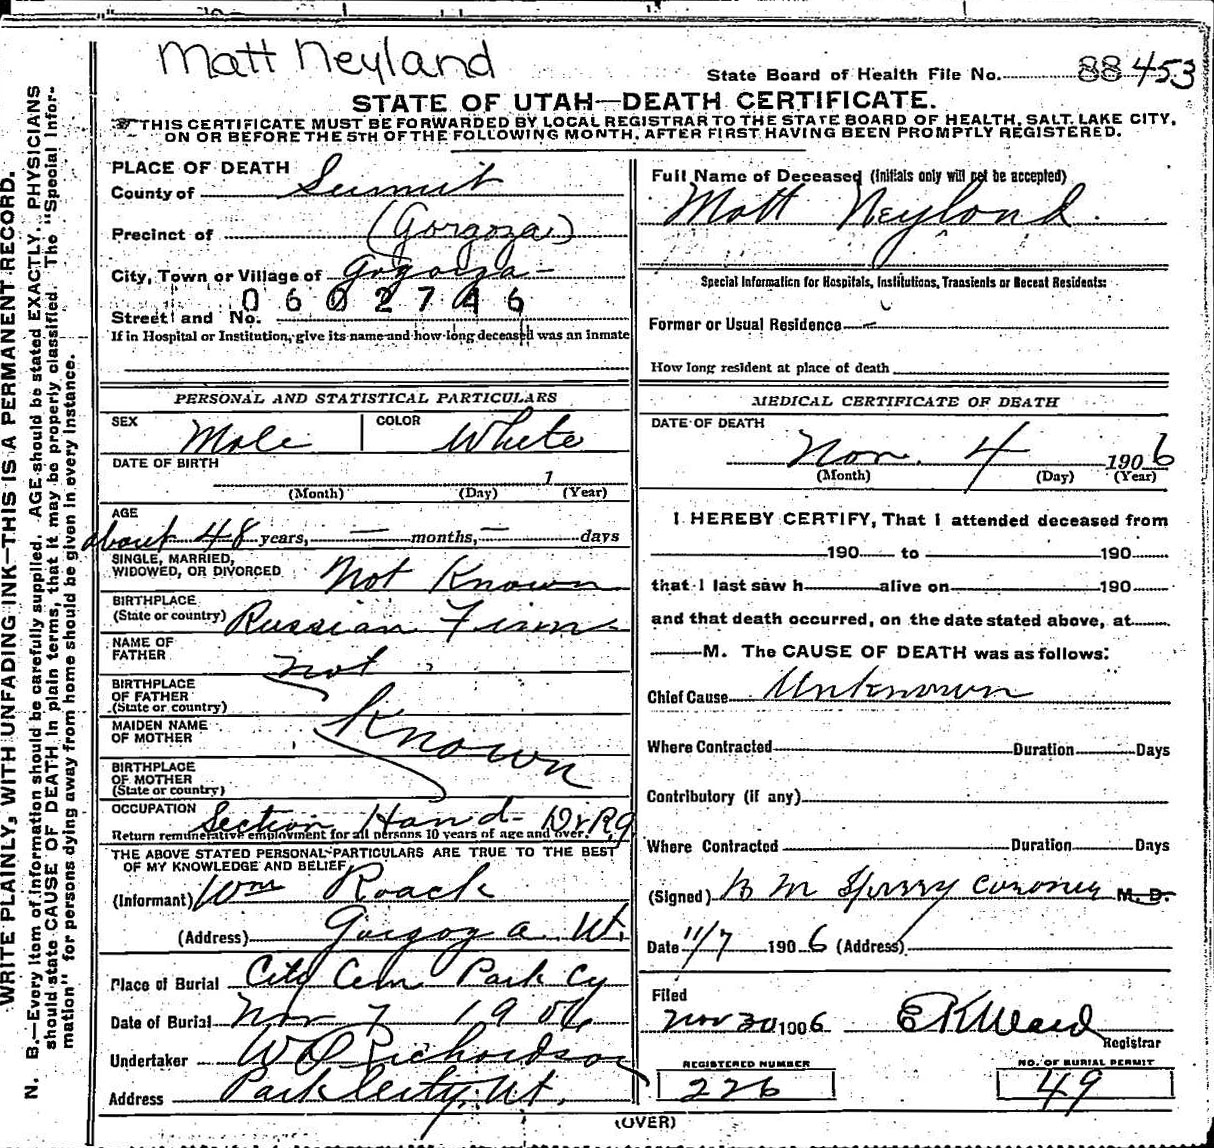 Matt Neyland
State Board of Health File No. 88 453
STATE OF UTAH—DEATH CERTIFICATE.
THIS CERTIFICATE MUST BE FORWARDED BY LOCAL REGISTRAR TO THE STATE BOARD OF HEALTH, SALT LAKE CITY,
ON OR BEFORE THE 5TH OF THE FOLLOWING MONTH, AFTER FIRST HAVING BEEN PROMPTLY REGISTERED.
WRITE PLAINLY, WITH UNFADING INK—THIS IS A PERMANENT RECORD.
N. B.—Every item of information should be carefully supplied. AGE should be stated EXACTLY. PHYSICIANS
should state CAUSE OF DEATH in plain terms, that it may be properly classified. The "Special Infor-
mation" for persons dying away from home should be given in every instance.
PLACE OF DEATH
County of Summit
Precinct of (Gorgoza)
City, Town or Village of Gogorza
0602746
Street and No.
If in Hospital or Institution, give its name and how long deceased was an inmate
PERSONAL AND STATISTICAL PARTICULARS
SEX Male COLOR White
DATE OF BIRTH
1
(Month) (Day) (Year)
AGE
about 48 years, — months, — days
SINGLE, MARRIED,
WIDOWED, OR DIVORCED Not Known
BIRTHPLACE
(State or country) Russian
NAME OF
FATHER not
BIRTHPLACE
OF FATHER
(State or country)
Known
MAIDEN NAME
OF MOTHER
BIRTHPLACE
OF MOTHER
(State or country)
OCCUPATION Section Hand - D&RG
Return remunerative employment for all persons 10 years of age and over.
THE ABOVE STATED PERSONAL PARTICULARS ARE TRUE TO THE BEST
OF MY KNOWLEDGE AND BELIEF
(Informant) Wm Roack
(Address) Gorgoza Ut.
Place of Burial City Cem Park Cy
Date of Burial Nov 7 1906
Undertaker W D Richardson
Address Park City, Ut.
Full Name of Deceased (Initials only will not be accepted)
Matt Neyland.
Special Information for Hospitals, Institutions, Transients or Recent Residents:
Former or Usual Residence —
How long resident at place of death
MEDICAL CERTIFICATE OF DEATH
DATE OF DEATH
Nov. 4 1906
(Month) (Day) (Year)
I HEREBY CERTIFY, That I attended deceased from
190 to 190
that I last saw h alive on 190
and that death occurred, on the date stated above, at
M. The CAUSE OF DEATH was as follows:
Chief Cause Unknown
Where Contracted Duration Days
Contributory (if any)
Where Contracted Duration Days
(Signed) M Coroner M. D.
Date 11/7 1906 (Address)
Filed
Nov 30 1906 E K Ward
Registrar
REGISTERED NUMBER
226
NO. OF BURIAL PERMIT
49
(OVER)